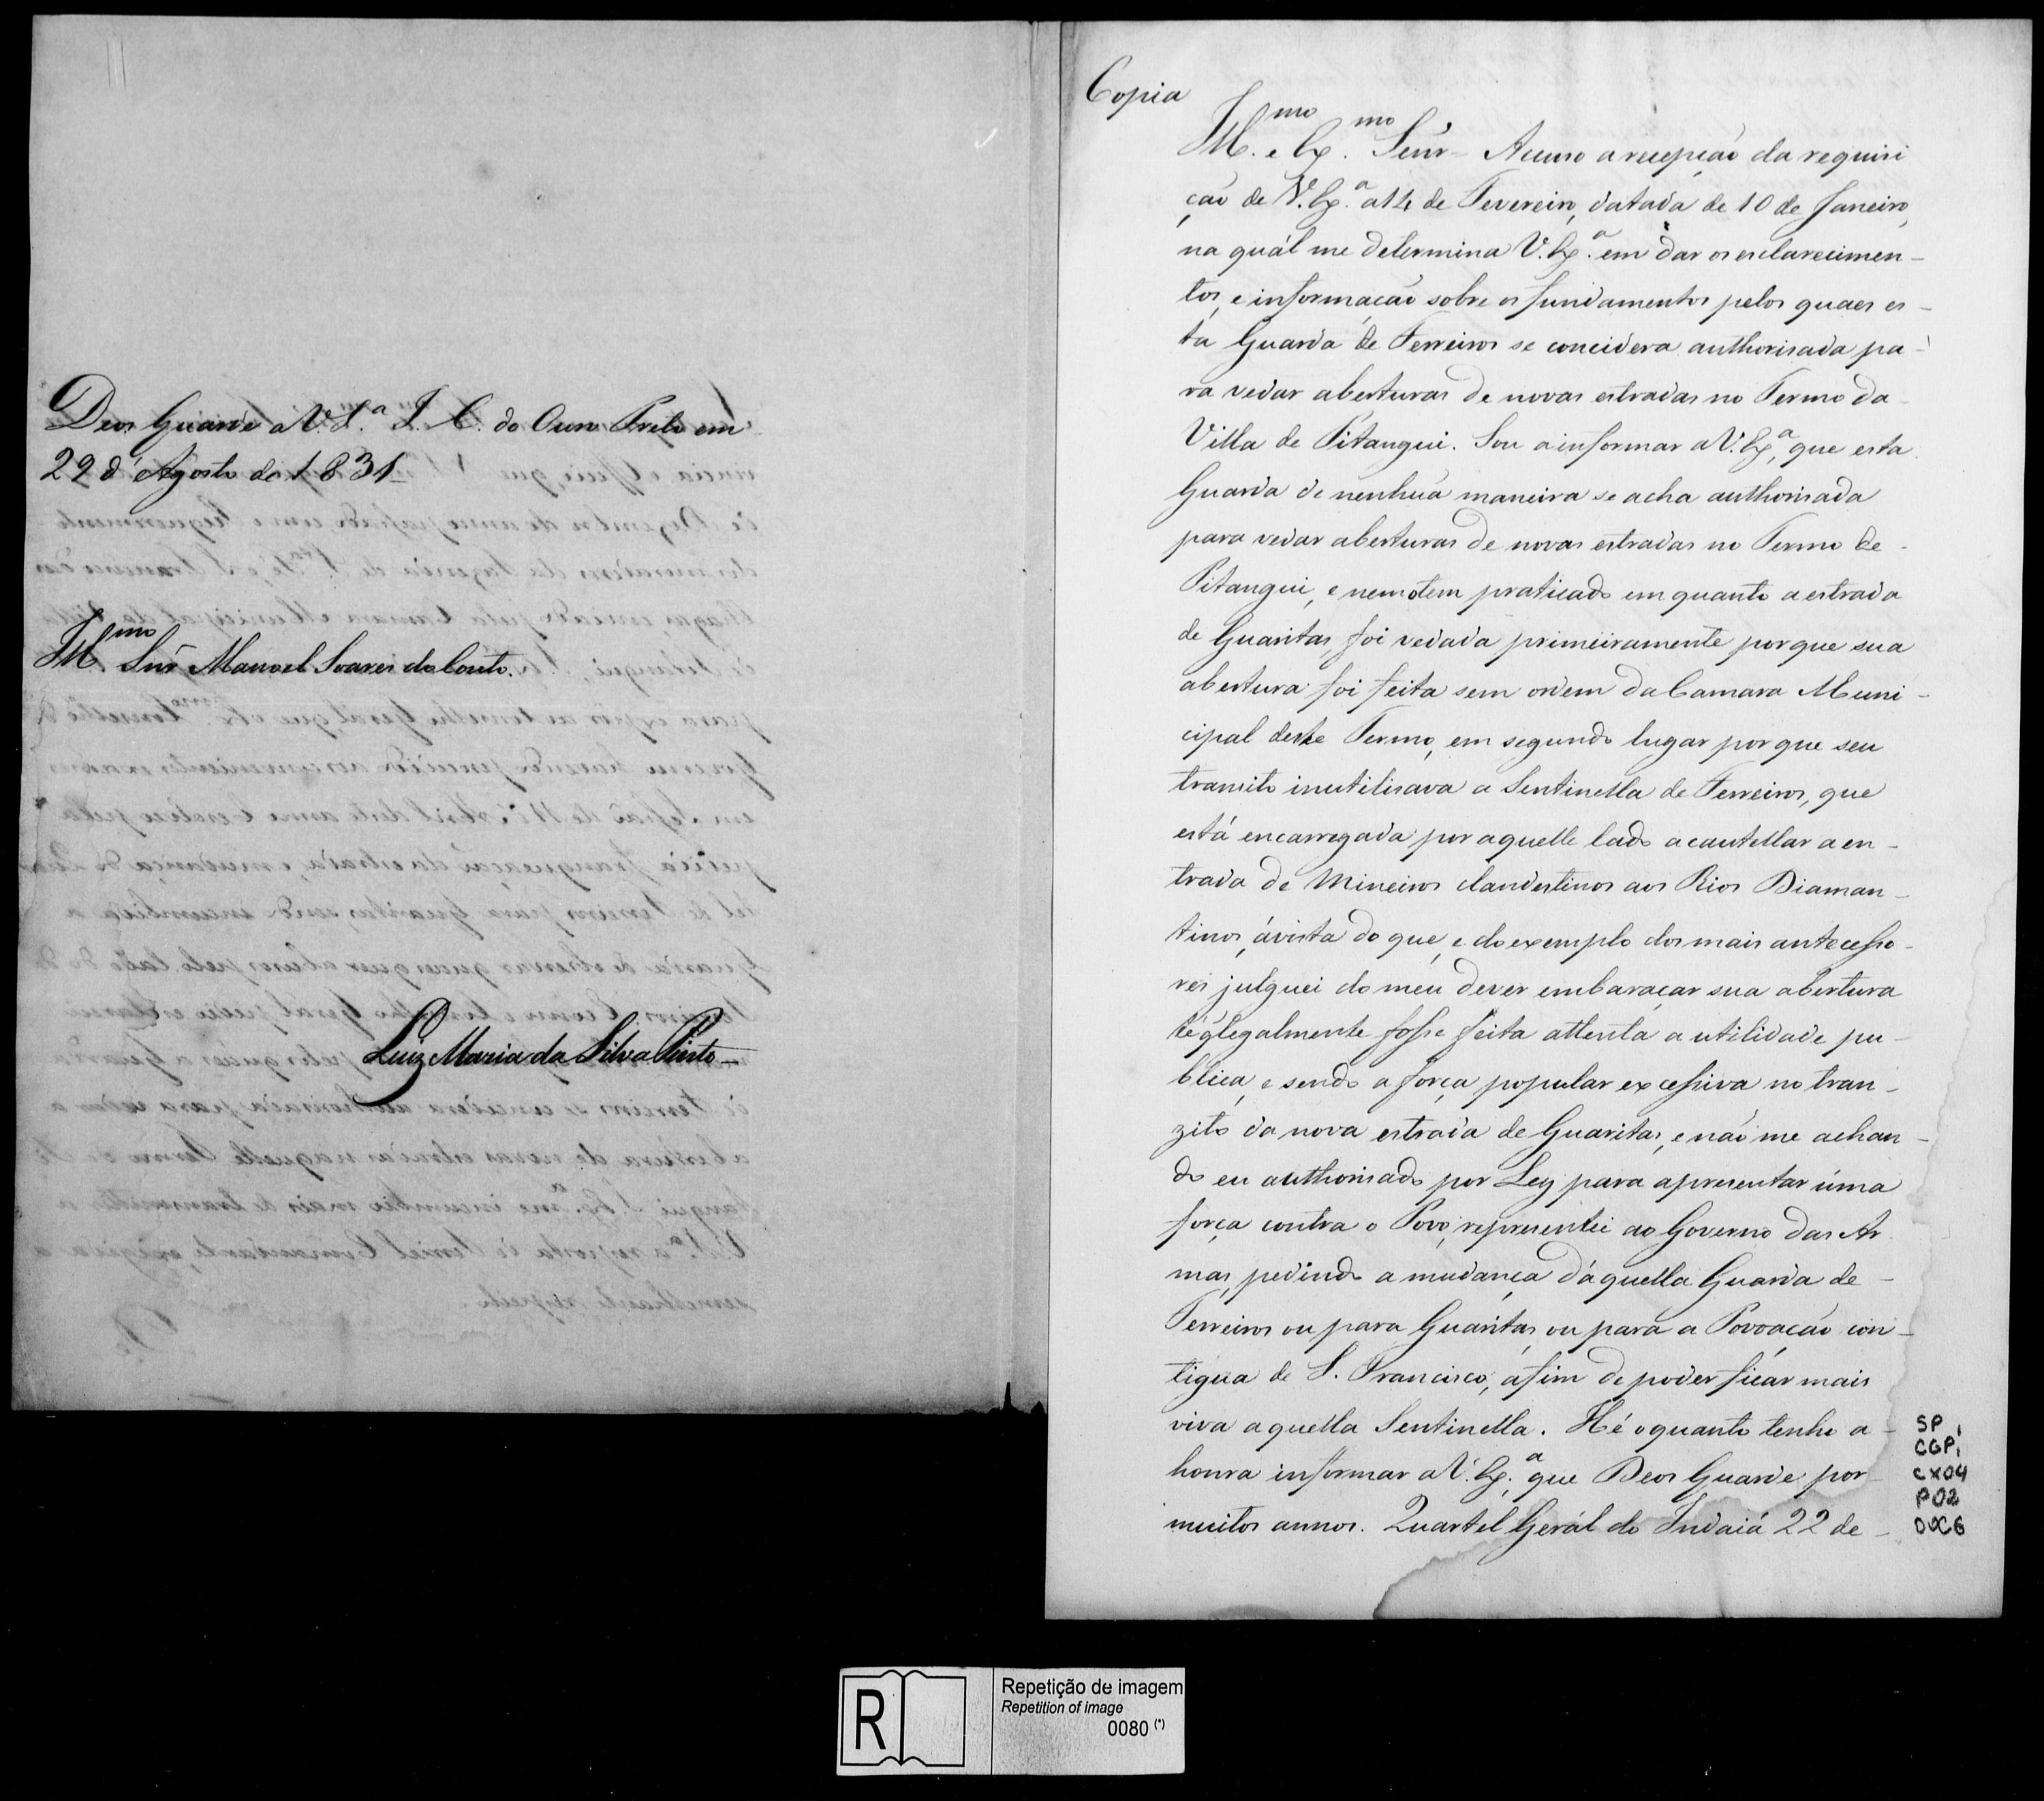 Deos Guarde a V. S.ª I. C. do Ouro Preto em
29 d'Agosto de 1831
Ill.mo Snr̃ Manoel Soares do Couto.
Luiz Maria da Silva Pinto
Copia
Ill.mo e Ex.mo Senr̃ - Accuso a recepção da requisi
ção de V. Ex.ª a 14 de Fevereiro, datada de 10 de Janeiro,
na quál me determina V. Ex.ª em dar os esclarecimen-
tos, e informação sobre os fundamentos pelos quaes es-
ta Guarda de Ferreiros se concidera authorisada pa-
ra vedar aberturas de novas estradas no Termo da
Villa de Pitangui. Sou a informar a V. Ex.ª, que esta
Guarda de nenhuã maneira se acha authorisada
para vedar aberturas de novas estradas no Termo de
Pitangui, e nem o tem praticado em quanto a estrada
de Guaritas, foi vedada primeiramente porque sua
abertura foi feita sem ordem da Camara Muni-
cipal deste Termo, em segundo lugar porque seu
transito inutilisava a Sentinella de Ferreiros, que
está encarregada por aquelle lado acautellar a en-
trada de Mineiros clandestinos aos Rios Diaman-
tinos, ávista do que, e do exemplo dos mais antecesso-
res julguei do meu dever embaraçar sua abertura
té q̃ legalmente fosse feita attenta a utilidade pu-
blica, e sendo a força popular excessiva no tran-
zito da nova estrada de Guaritas, e não me achan-
do eu authorisado por Ley para apresentar uma
força contra o Povo, representei ao Governo das Ar
mas, pedindo a mudança d'aquella Guarda de
Ferreiros ou para Guaritas, ou para a Povoação con-
tigua de S. Francisco, afim de poder ficar mais
viva aquella Sentinella. Hé o quanto tenho a
honra informar a V. Ex.ª, que Deos Guarde por
muitos annos. Quartel Gerál do Indaiá 22 de
SP,
CGP,
CX04
P02
DOC6
R
Repetição de imagem
Repetition of image
0080 (*)